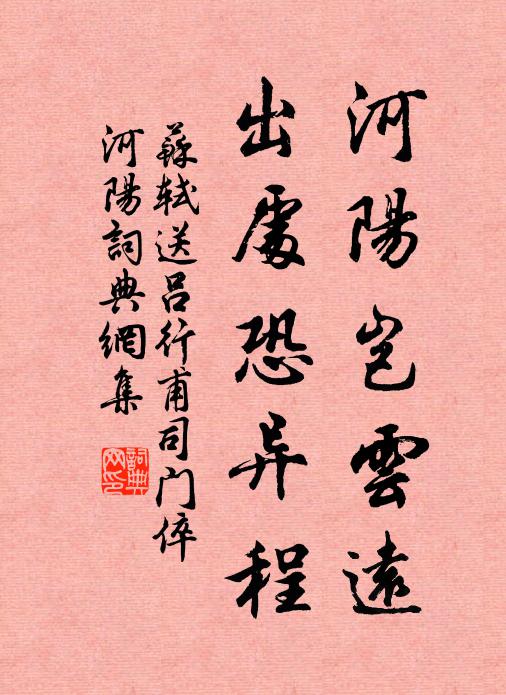 河陽豈雲遠
出處恐异程
蘇軾送呂行甫司門倅
河陽詞典網集
詞典
网印